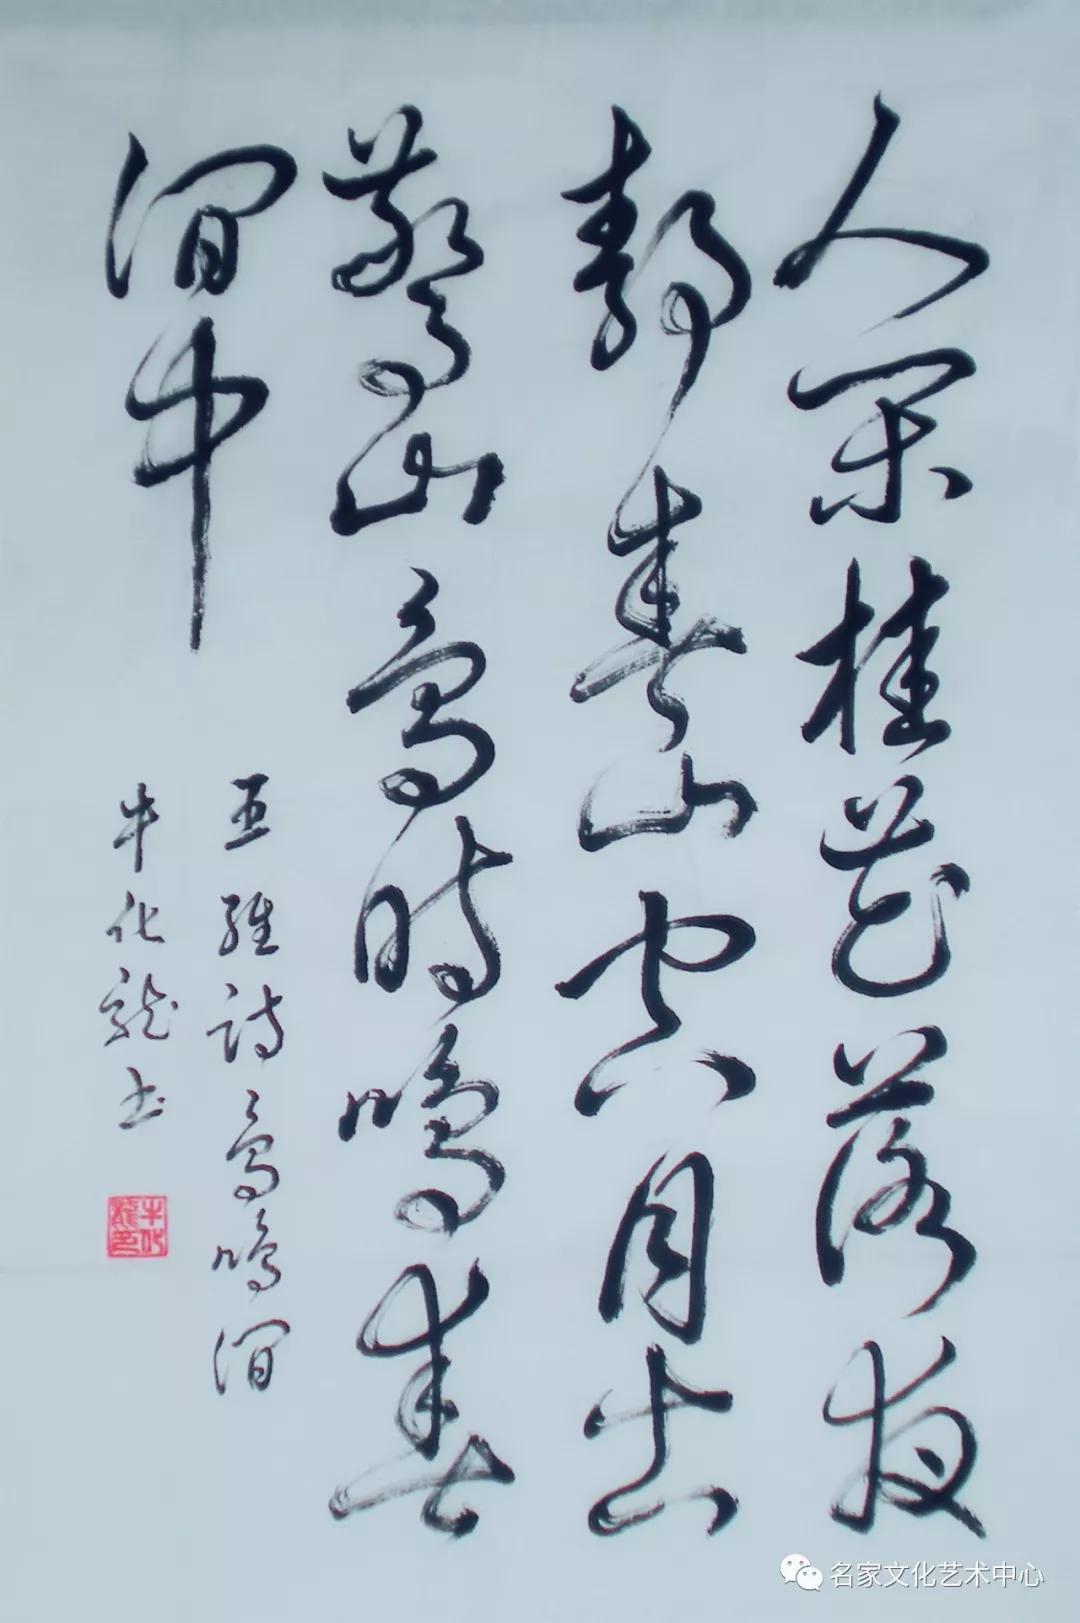 人闲桂花落夜
静春山空月出
惊山鸟时鸣春
涧中
王维诗鸟鸣涧
牛化龙书
牛化龙印
名家文化艺术中心